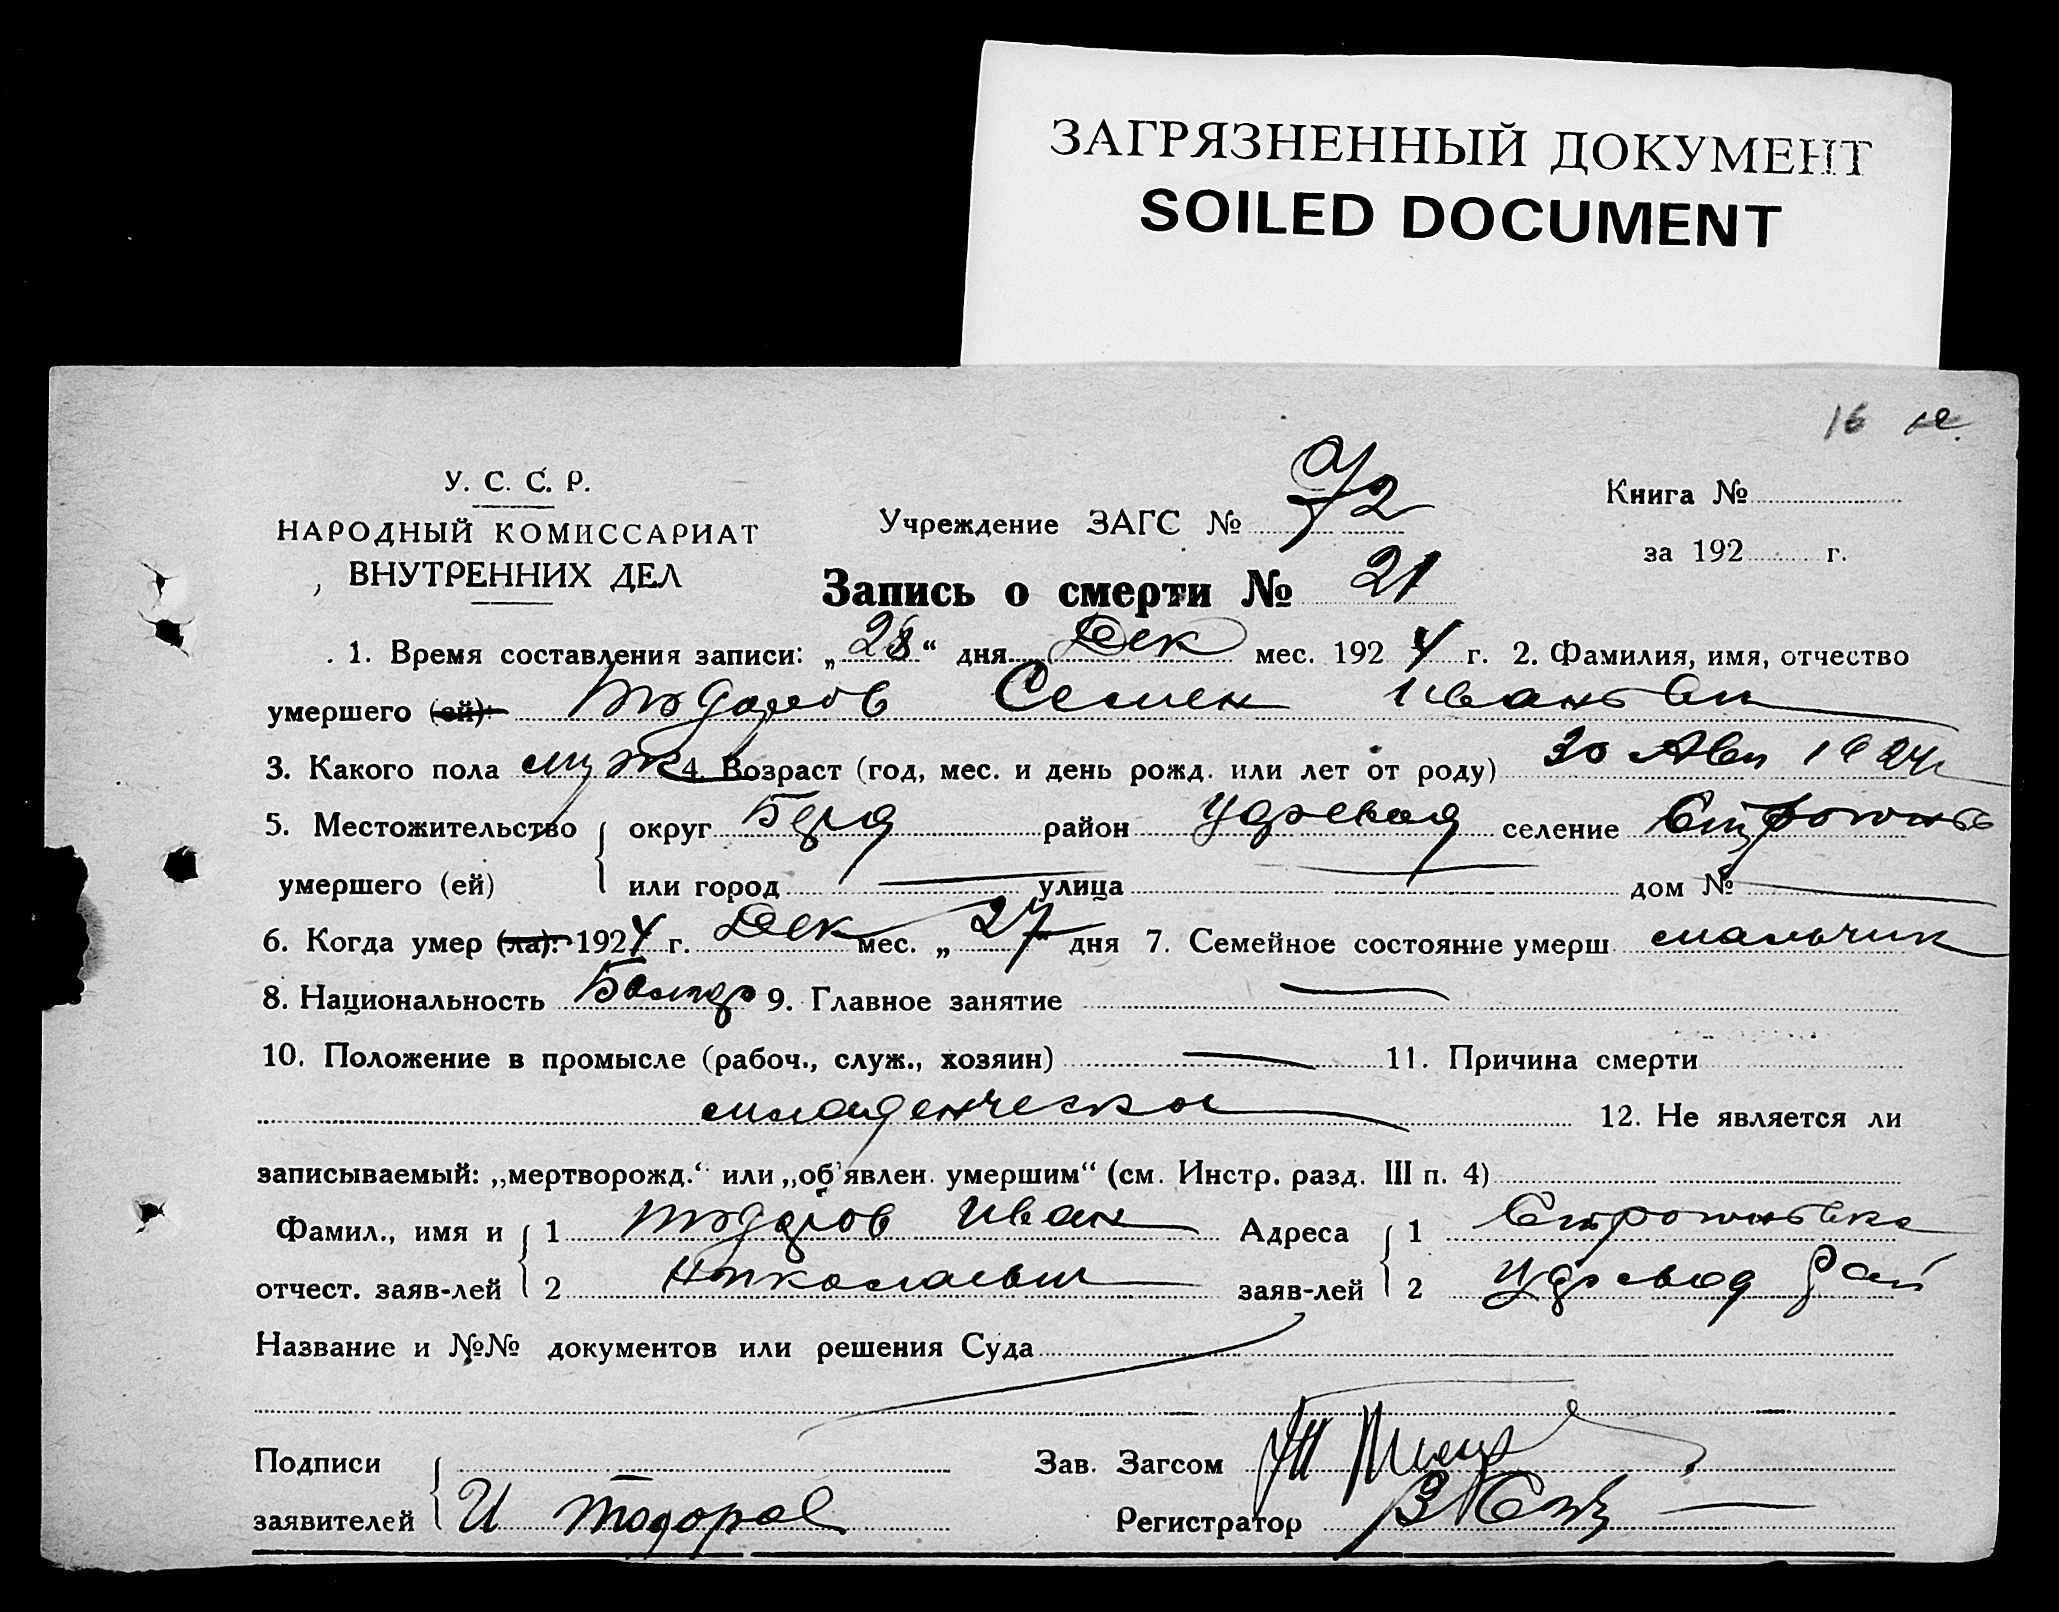 ЗАГРЯЗНЕННЫЙ ДОКУМЕНТ
SOILED DOCUMENT
16
У. С. С. Р.
НАРОДНЫЙ КОМИССАРИАТ
ВНУТРЕННИХ ДЕЛ
Учреждение ЗАГС №
Книга №
за 192 г.
Запись о смерти № 21
1. Время составления записи: „28“ дня Дек мес. 1924 г. 2. Фамилия, имя, отчество
умершего (ей): Тодоров Семен
3. Какого пола муж 4. Возраст (год, мес. и день рожд. или лет от роду) 30 Авг 1924
5. Местожительство умершего (ей) { округ район селение
или город — улица — дом № —
6. Когда умер (ла): 1924 г. Дек мес. „27“ дня 7. Семейное состояние умерш мальчик
8. Национальность Болгар 9. Главное занятие —
10. Положение в промысле (рабоч., служ., хозяин) — 11. Причина смерти
младенческая 12. Не является ли
записываемый: „мертворожд.“ или „об'явлен. умершим“ (см. Инстр. разд. III п. 4)
Фамил., имя и { 1 Тодоров Иван Адреса { 1
отчест. заяв-лей { 2 заяв-лей { 2 рай
Название и №№ документов или решения Суда
Подписи Зав. Загсом
заявителей { И Тодоров Регистратор